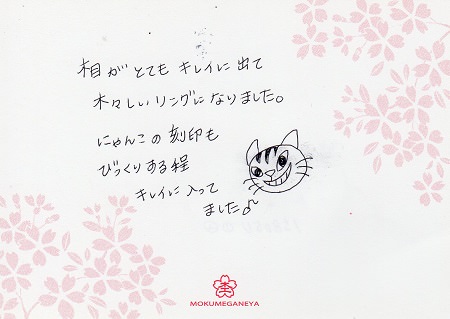 木目がとてもキレイに出て
木々しいリングになりました。
にゃんこの刻印も
びっくりする程
キレイに入って
ました♪
MOKUMEGANEYA